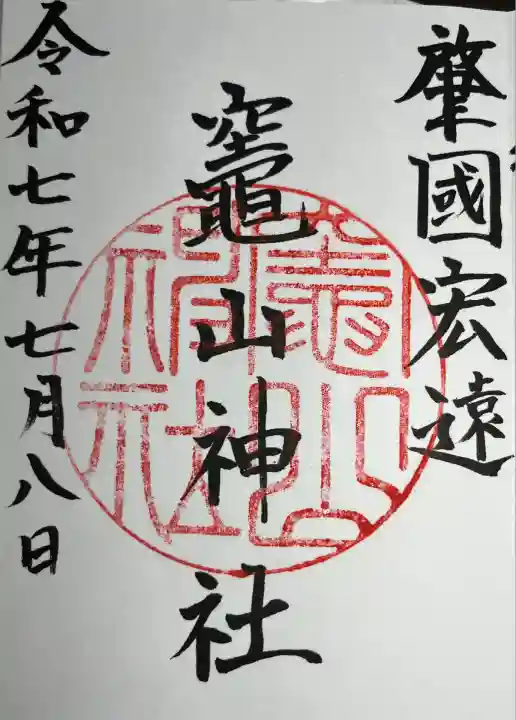 肇國宏遠
竈山神社
竈山神社
令和七年七月八日